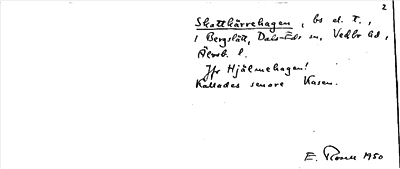 2
Skottkärrehagen, bs d. t.,
i Bergslätt, Dals-Eds sn, Vedbo hd,
Älvsb. l.
Jfr Hjälmehagen!
Kallades senare Kasen.
E. Rosell 1950